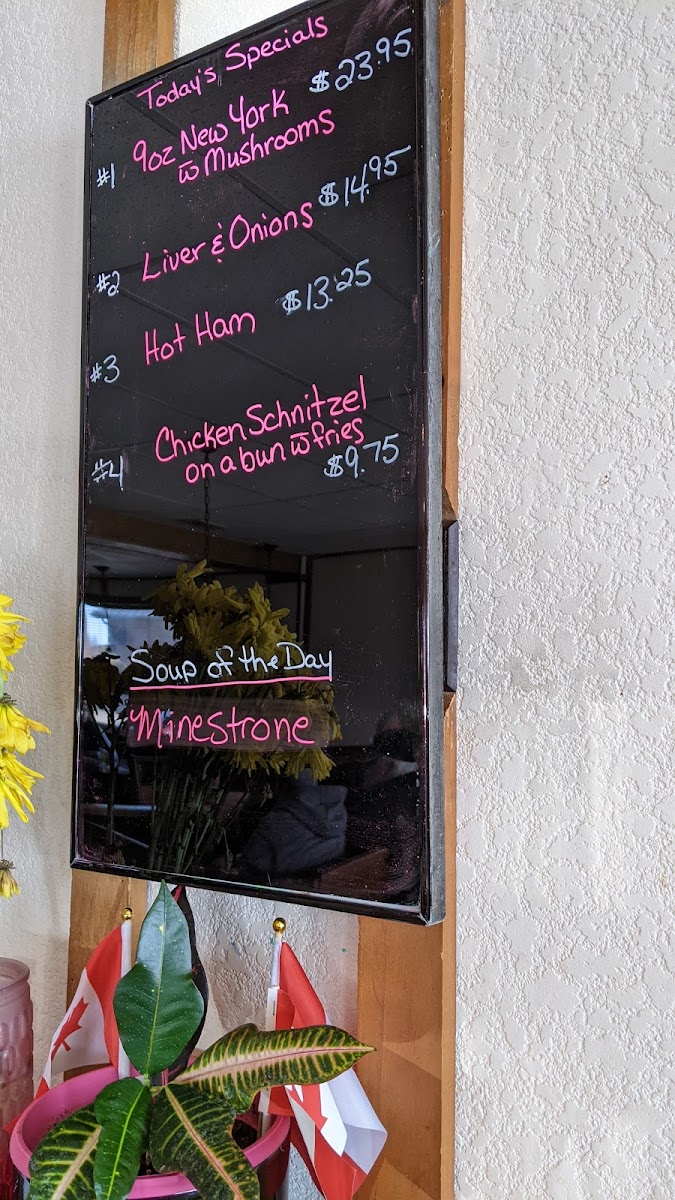 Today's Specials
$23.95
#1 9oz New York
w̄ Mushrooms
$14.95
#2 Liver & Onions
$13.25
#3 Hot Ham
#4 Chicken Schnitzel
on a bun w̄ fries
$9.75
Soup of the Day
Minestrone